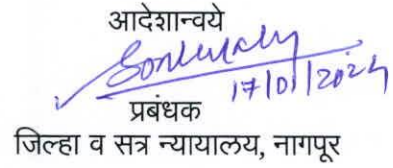 आदेशान्वये
17/01/2024
प्रबंधक
जिल्हा व सत्र न्यायालय, नागपूर